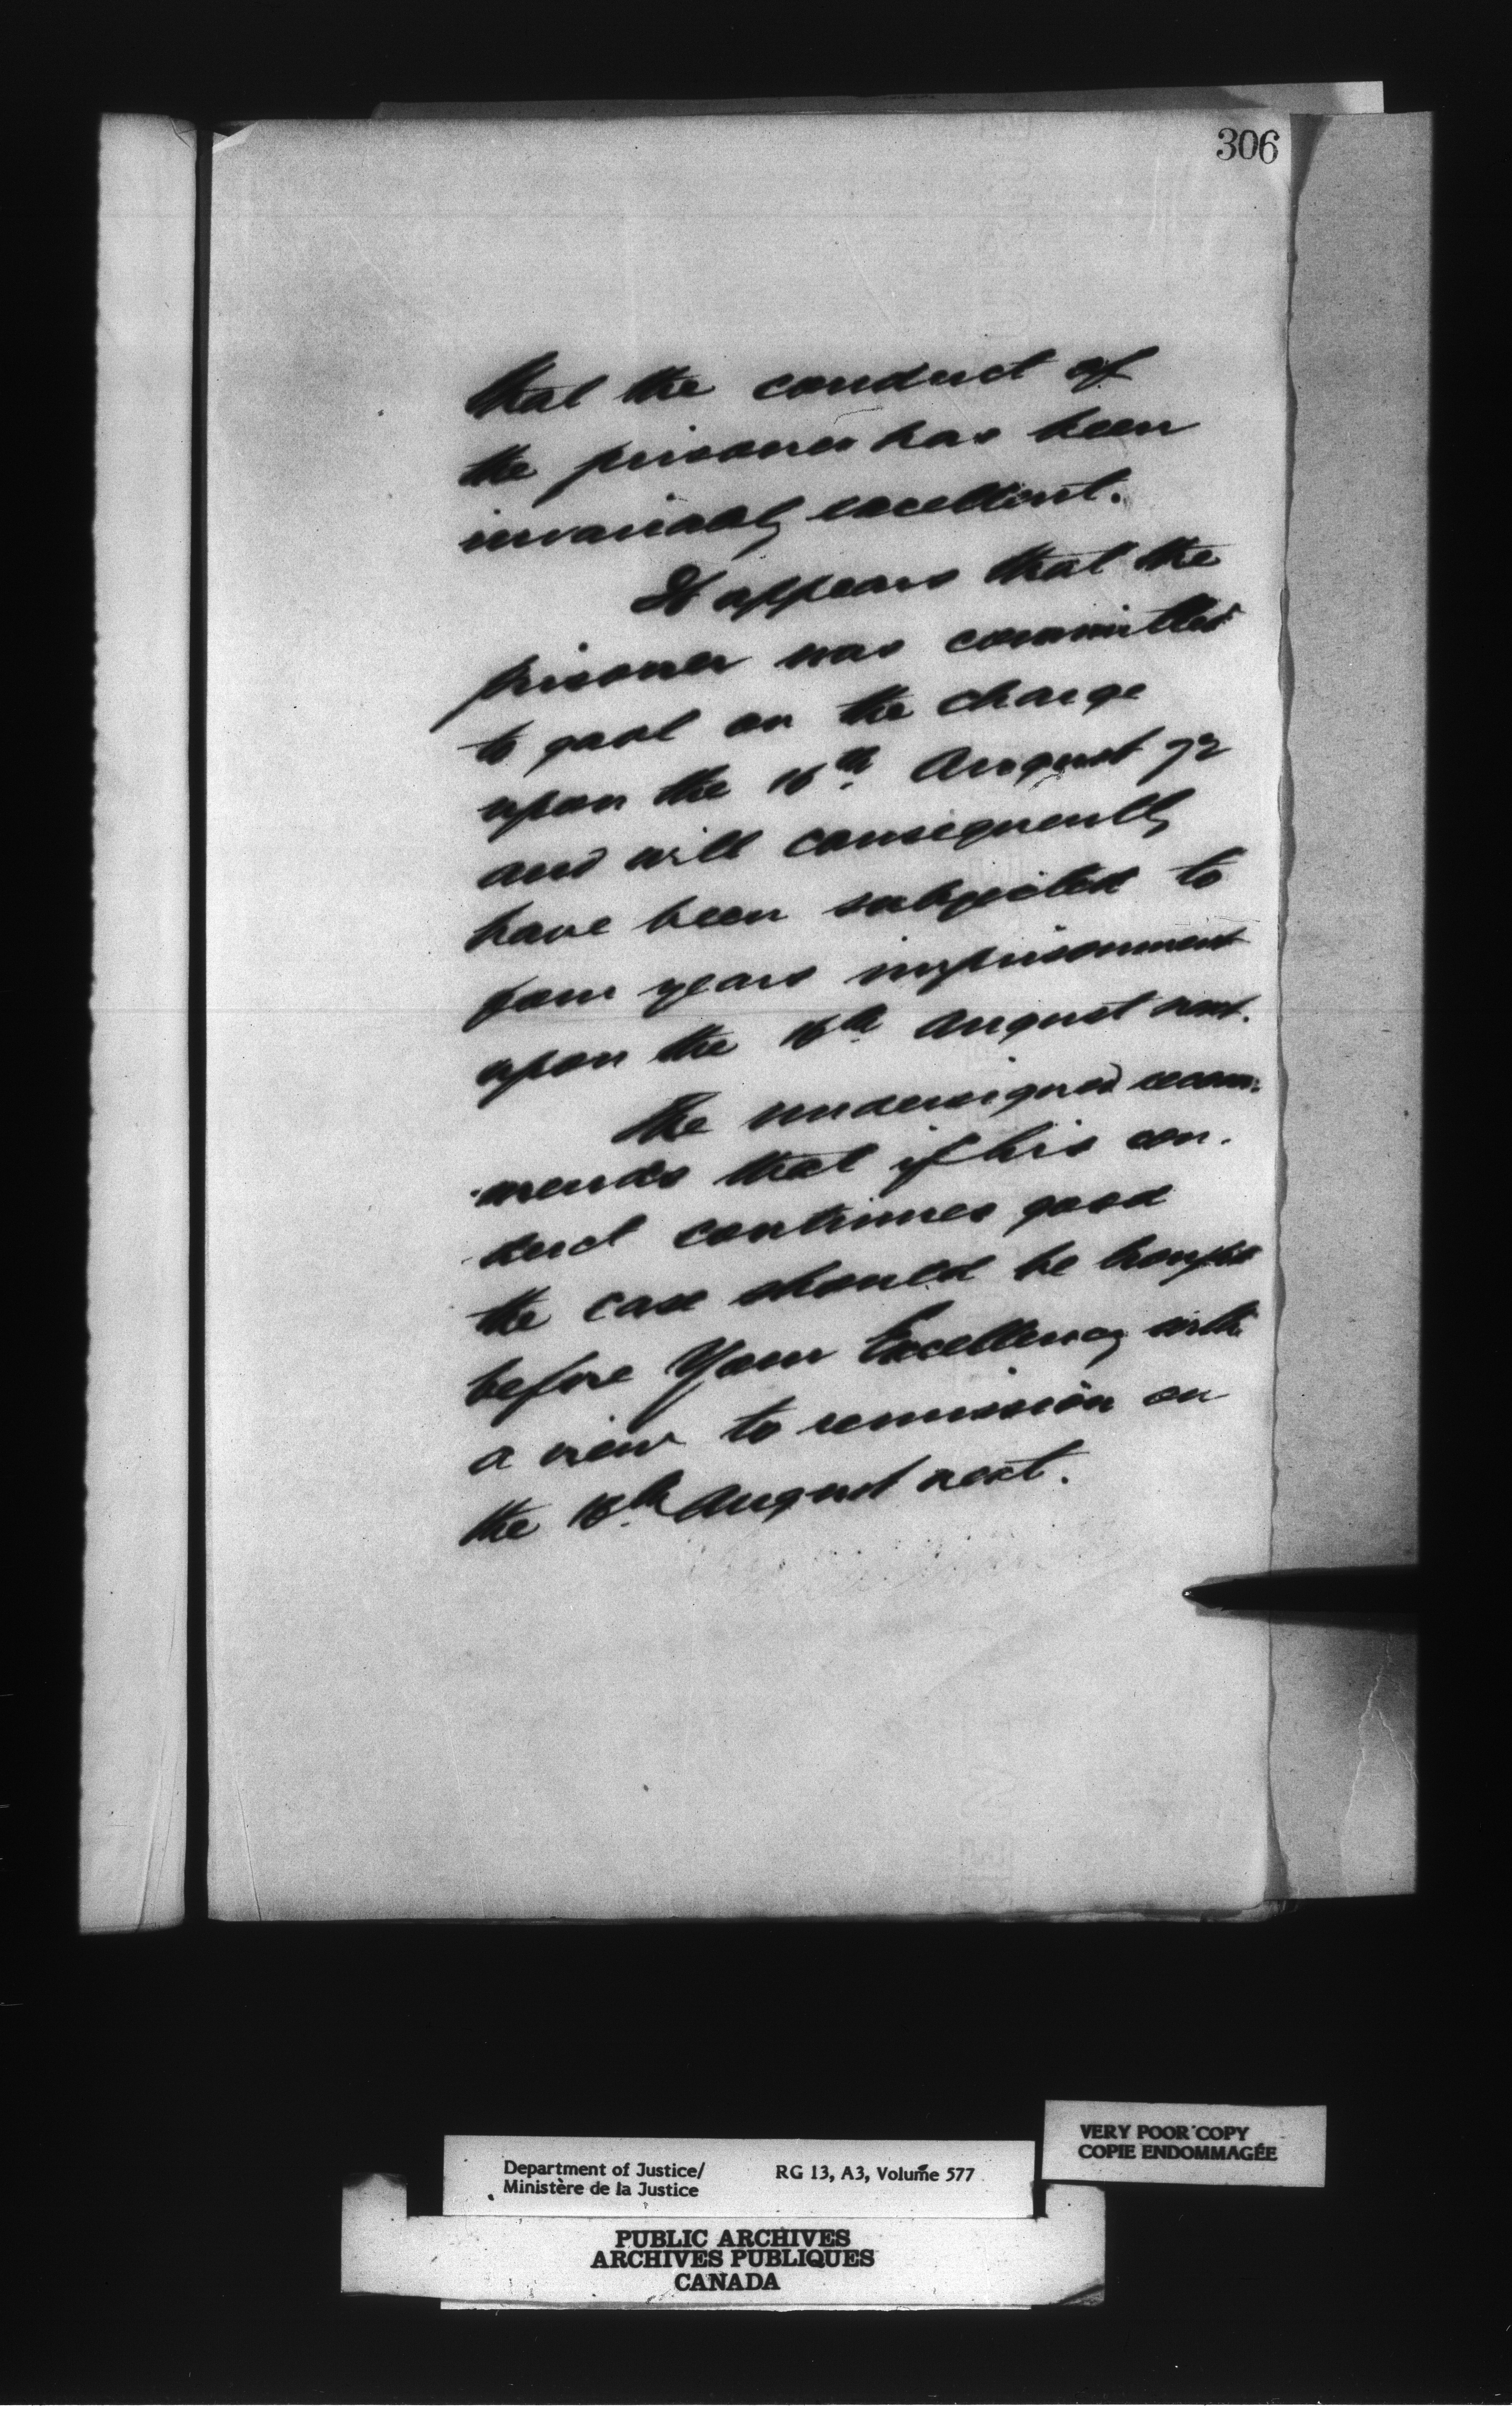 306
that the conduct of
the prisoner has been
invariably excellent.
It appears that the
prisoner was committed
to gaol on the charge
upon the 16th August 72
and will consequently
have been subjected to
four years imprisonment
upon the 16th August next.
The undersigned recom-
-mends that if his con-
-duct continues good
the case should be brought
before Your Excellency with
a view to remission on
the 16th August next.
VERY POOR COPY
COPIE ENDOMMAGÉE
Department of Justice/ RG 13, A3, Volume 577
Ministère de la Justice
PUBLIC ARCHIVES
ARCHIVES PUBLIQUES
CANADA